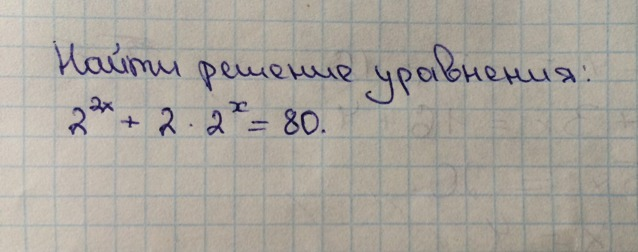 Найти решение уравнения:
2^{2x} + 2 · 2^x = 80.